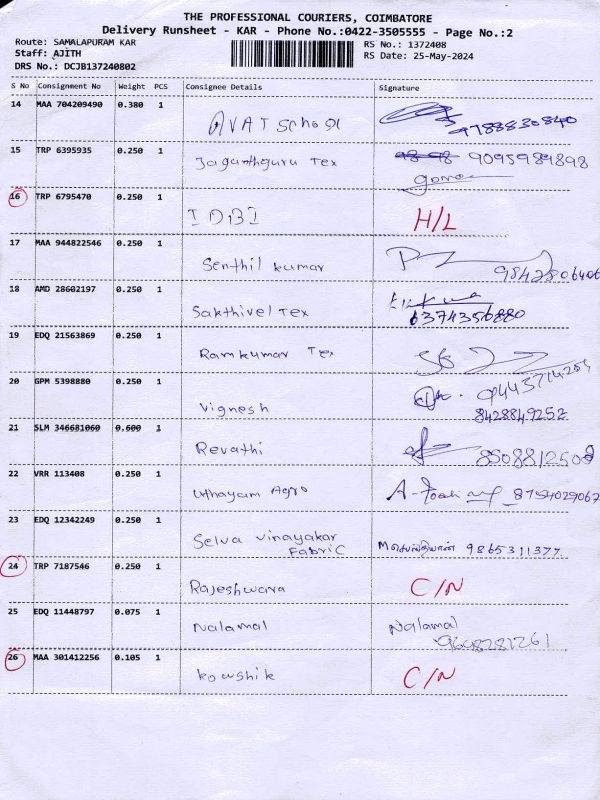 THE PROFESSIONAL COURIERS, COIMBATORE
Delivery Runsheet - KAR - Phone No.:0422-3505555 - Page No.:2
Route: SAMALAPURAM KAR
RS No.: 1372408
Staff: AJITH
RS Date: 25-May-2024
DRS No.: DCJB137240802
S No Consignment No Weight PCS Consignee Details Signature
14 MAA 704209490 0.380 1 AVAT School 9788830840
15 TRP 6395935 0.250 1 Jaganthguru Tex 9095989898
16 TRP 6795470 0.250 1 IDBI H/L
17 MAA 944822546 0.250 1 Senthil kumar 9842806406
18 AMD 28602197 0.250 1 Sakthivel Tex
6374356880
19 EDQ 21563869 0.250 1 Ramkumar Tex
9443714254
20 GPM 5398880 0.250 1 Vignesh 8428849252
21 SLM 346681060 0.600 1 Revathi 8508812508
22 VRR 113408 0.250 1 Uthayam Agro 8754029067
23 EDQ 12342249 0.250 1 Selva Vinayakar 9865311377
Fabric
24 TRP 7187546 0.250 1 Rajeshwara C/N
25 EDQ 11448797 0.075 1 Nalamal Nalamal
9608281261
26 MAA 301412256 0.105 1 Kowshik C/N